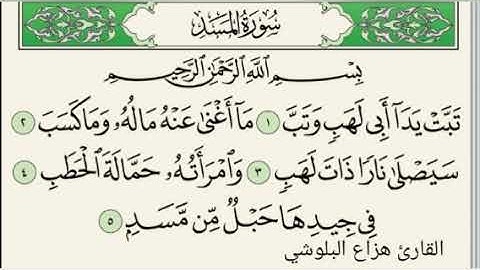 سُورَةُ المَسَدِ
بِسْمِ اللَّهِ الرَّحْمَٰنِ الرَّحِيمِ
تَبَّتْ يَدَآ أَبِى لَهَبٍ وَتَبَّ ١ مَآ أَغْنَىٰ عَنْهُ مَالُهُۥ وَمَا كَسَبَ ٢
سَيَصْلَىٰ نَارًا ذَاتَ لَهَبٍ ٣ وَٱمْرَأَتُهُۥ حَمَّالَةَ ٱلْحَطَبِ ٤
فِى جِيدِهَا حَبْلٌ مِّن مَّسَدٍۭ ٥
القارئ هزاع البلوشي